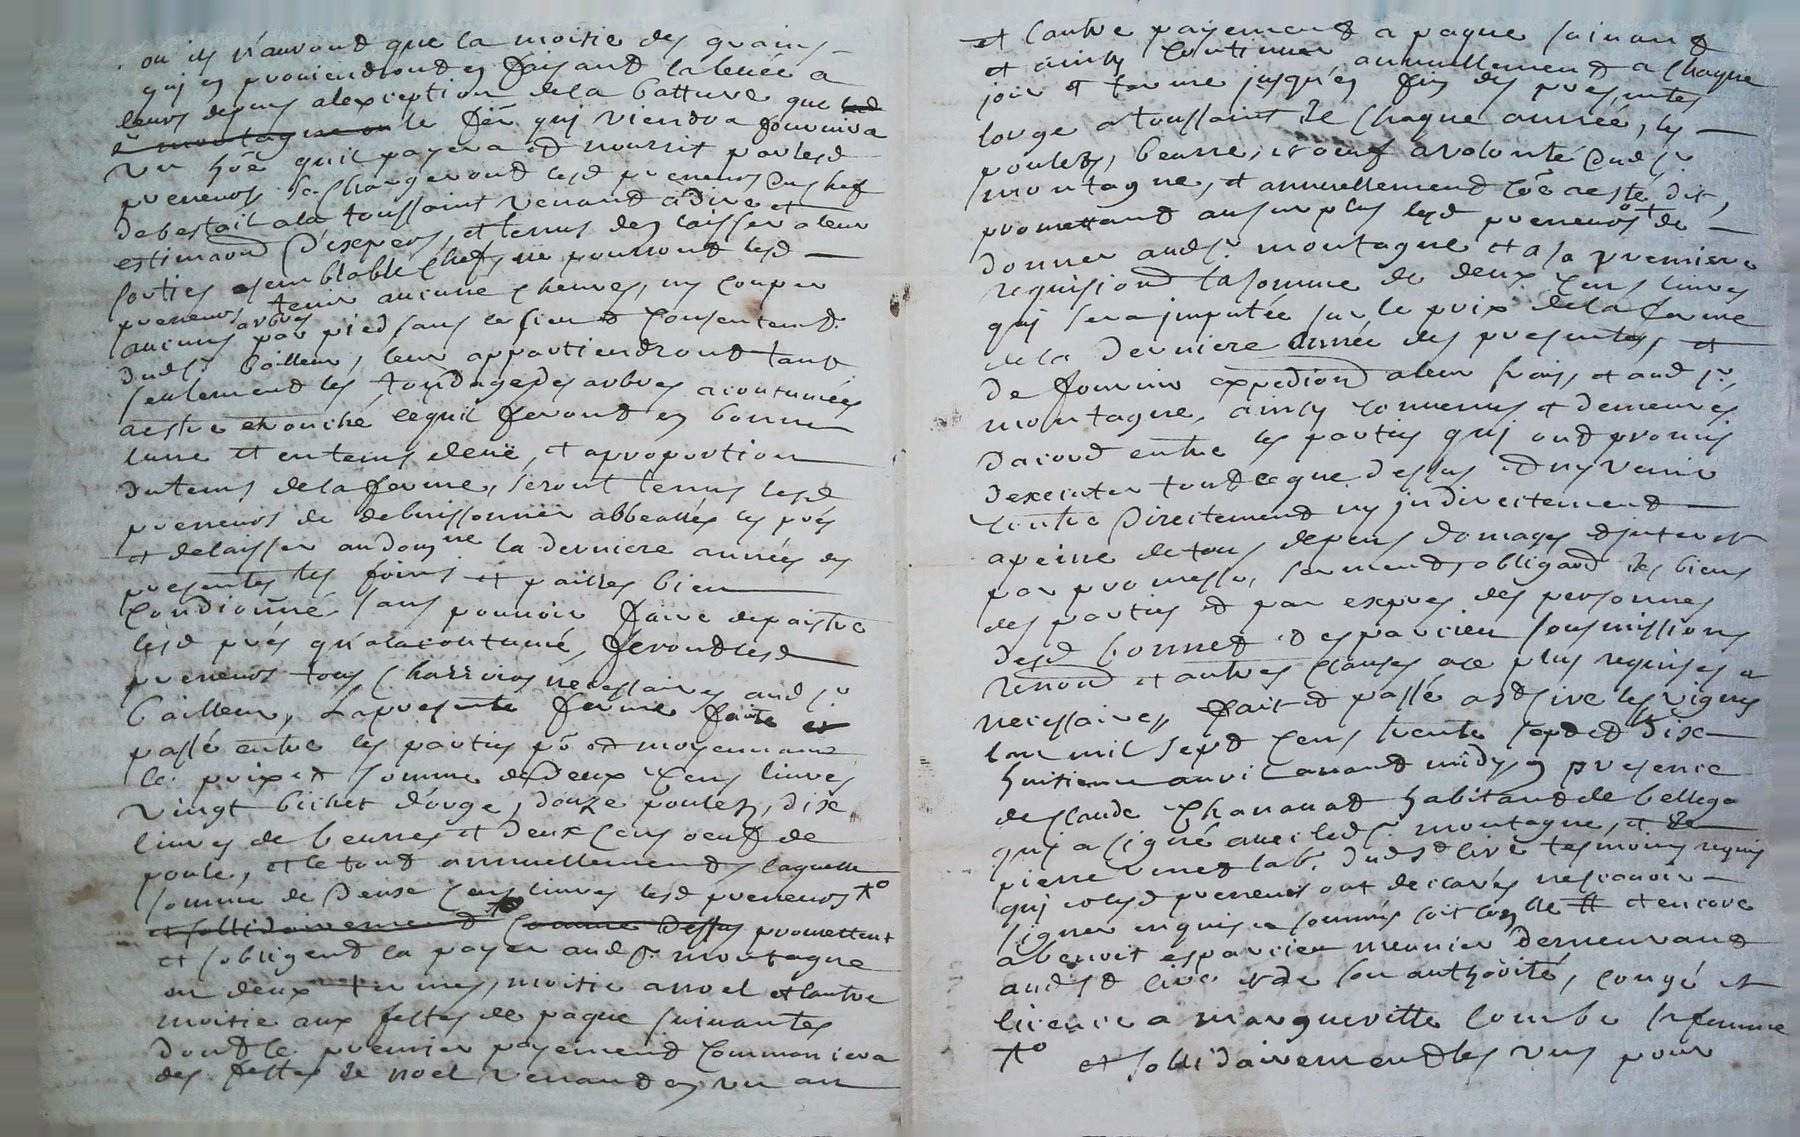 ou ils n'auront que la moitie des grains
qui en proviendront en faisant la levée a
leurs depens alexception de la batture que led
sr montagne ou le sr qui viendra fournira
un hõe quil payera et nourrit par lesd
preneurs se chargeront lesd preneurs du chef
de bestail a la toussaint venant a dire et
estimaõn d'expers, et tenus den laisser a leur
sorties semblable chef, ne pourront lesd
preneurs tenir aucune chevres, ny couper
aucuns arbres par pied sans le sieu et consentemt
dud sr bailleur, leur appartiendront tant
seulement les tondages des arbres acoutumées
a estre ce quil feront en bonne
lune et en tems deuë, et a proportion
du tems de la ferme, seront tenus lesd
preneurs de debuissonner les prés
et de laisser audomne la derniere année des
presentes les foins et pailles bien
condionné sans pouvoir faire depaistre
lesd prés qu'a la coutumé, feront lesd
preneurs tous charrois necessaires aud sr
bailleur, la presente ferme faite et
passé entre les parties põ et moyennant
le prix et somme de deux cens livres
vingt bichet d'orge, douze poulets, dix
livres de beurres et deux cens oeuf de
poule, et le tout annuellement, laquelle
somme de deux cens livres lesd preneurs
et sollidairement comme dessus promettent
et sobligent la payer aud sr montagne
en deux termes, moitie a noel et lautre
moitie aux festes de paque suivantes
dont le premier payement commancera
des festes de noel venant en un an
et lautre payement a paque suivant
et ainsy continuer annuellement a chaque
jour et terme jusqu'en fin des presentes
lorge a toussaint de chaque année, les
poulets, beurre, et oeuf a volonté dud sr
montagne, et annuellement cõe reste dit,
promettant au surplus lesd preneurs de
donner aud sr montagne et a sa premiere
requisiond la somme de deux cens livres
qui sera imputée sur le prix de la ferme
de la derniere année des presentes, et
de fournir expediond a leur frais, et aud sr
montagne, ainsy convenus et demeurés
dacord entre les parties qui ont promis
dexecuter tout ce que dessus et ny venir
contre directement ny indirectement
a peine de tous depens domages et interet
par promesse, serment, obligaõn des biens
des parties et par expres des personnes
desd bonnet et esparcieu sousmissions
renond et autres clauses a ce plus requises et
necessaires fait et passé a st sire les vignes
lan mil sept cens trente sept et dix
huitieme avril avant midy en presence
de claude chanavat habitant de bellega
qui a signé avec led sr montagne, et de
pierre vinet lab. dud st cire tesmoins requis
qui et lesd preneurs ont declarés ne scavoir
signer enquis et sommés et encore
a benoit esparcieu meunier demeurant
aud st cire et de son authorité, congé et
licence a margueritte combe sa femme
et sollidairement les uns pour